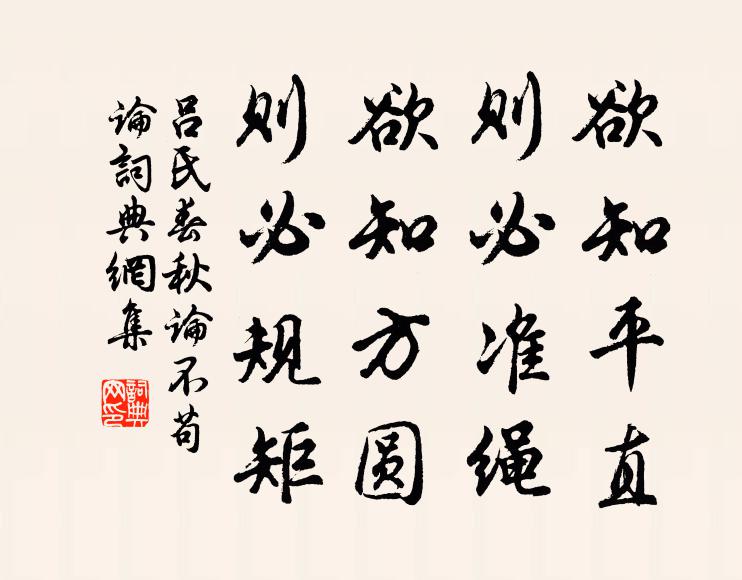 欲知平直
则必准绳
欲知方圆
则必规矩
吕氏春秋论不苟
论詞典網集
詞典网印